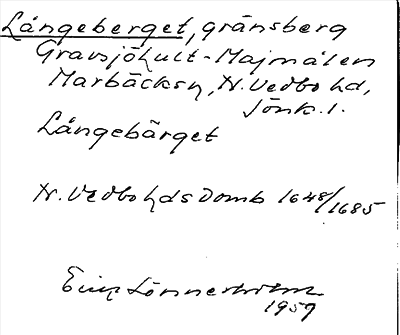 Långeberget, gränsberg
Gransjöhult - Majmålen
Marbäcksn, N. Vedbo hd,
Jönk. l.
Långebärget
N. Vedbo hds Domb 1648/1685
Erik Lönnerholm
1957